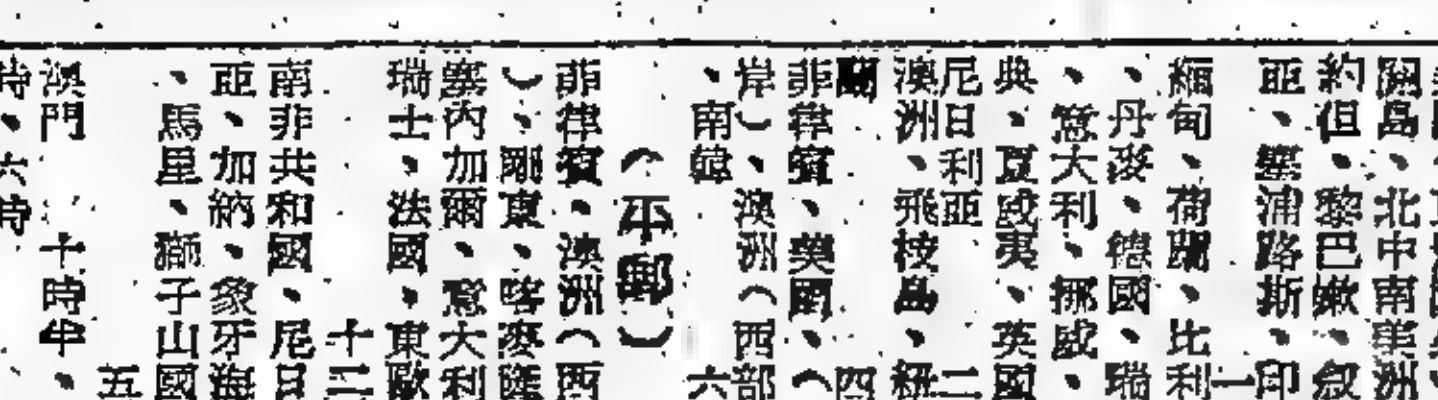 關島、北中南美洲
約但、黎巴嫩、叙
亞、塞浦路斯、印
一
緬甸、荷蘭、比利
、丹麥、德國、瑞
、意大利、挪威、
典、夏威夷、英國
尼日利亞　二
澳洲、飛枝島、紐
蘭　四
菲律賓、美國、（
岸）、澳洲（西部
、南韓　六
（平郵）
菲律賓、澳洲（西
）、剛東、喀麥隆
塞內加爾、意大利
瑞士、法國、東歐
十二
南非共和國、尼日
亞、加納、象牙海
、馬里、獅子山國
五
澳門　十時半、
時、六時